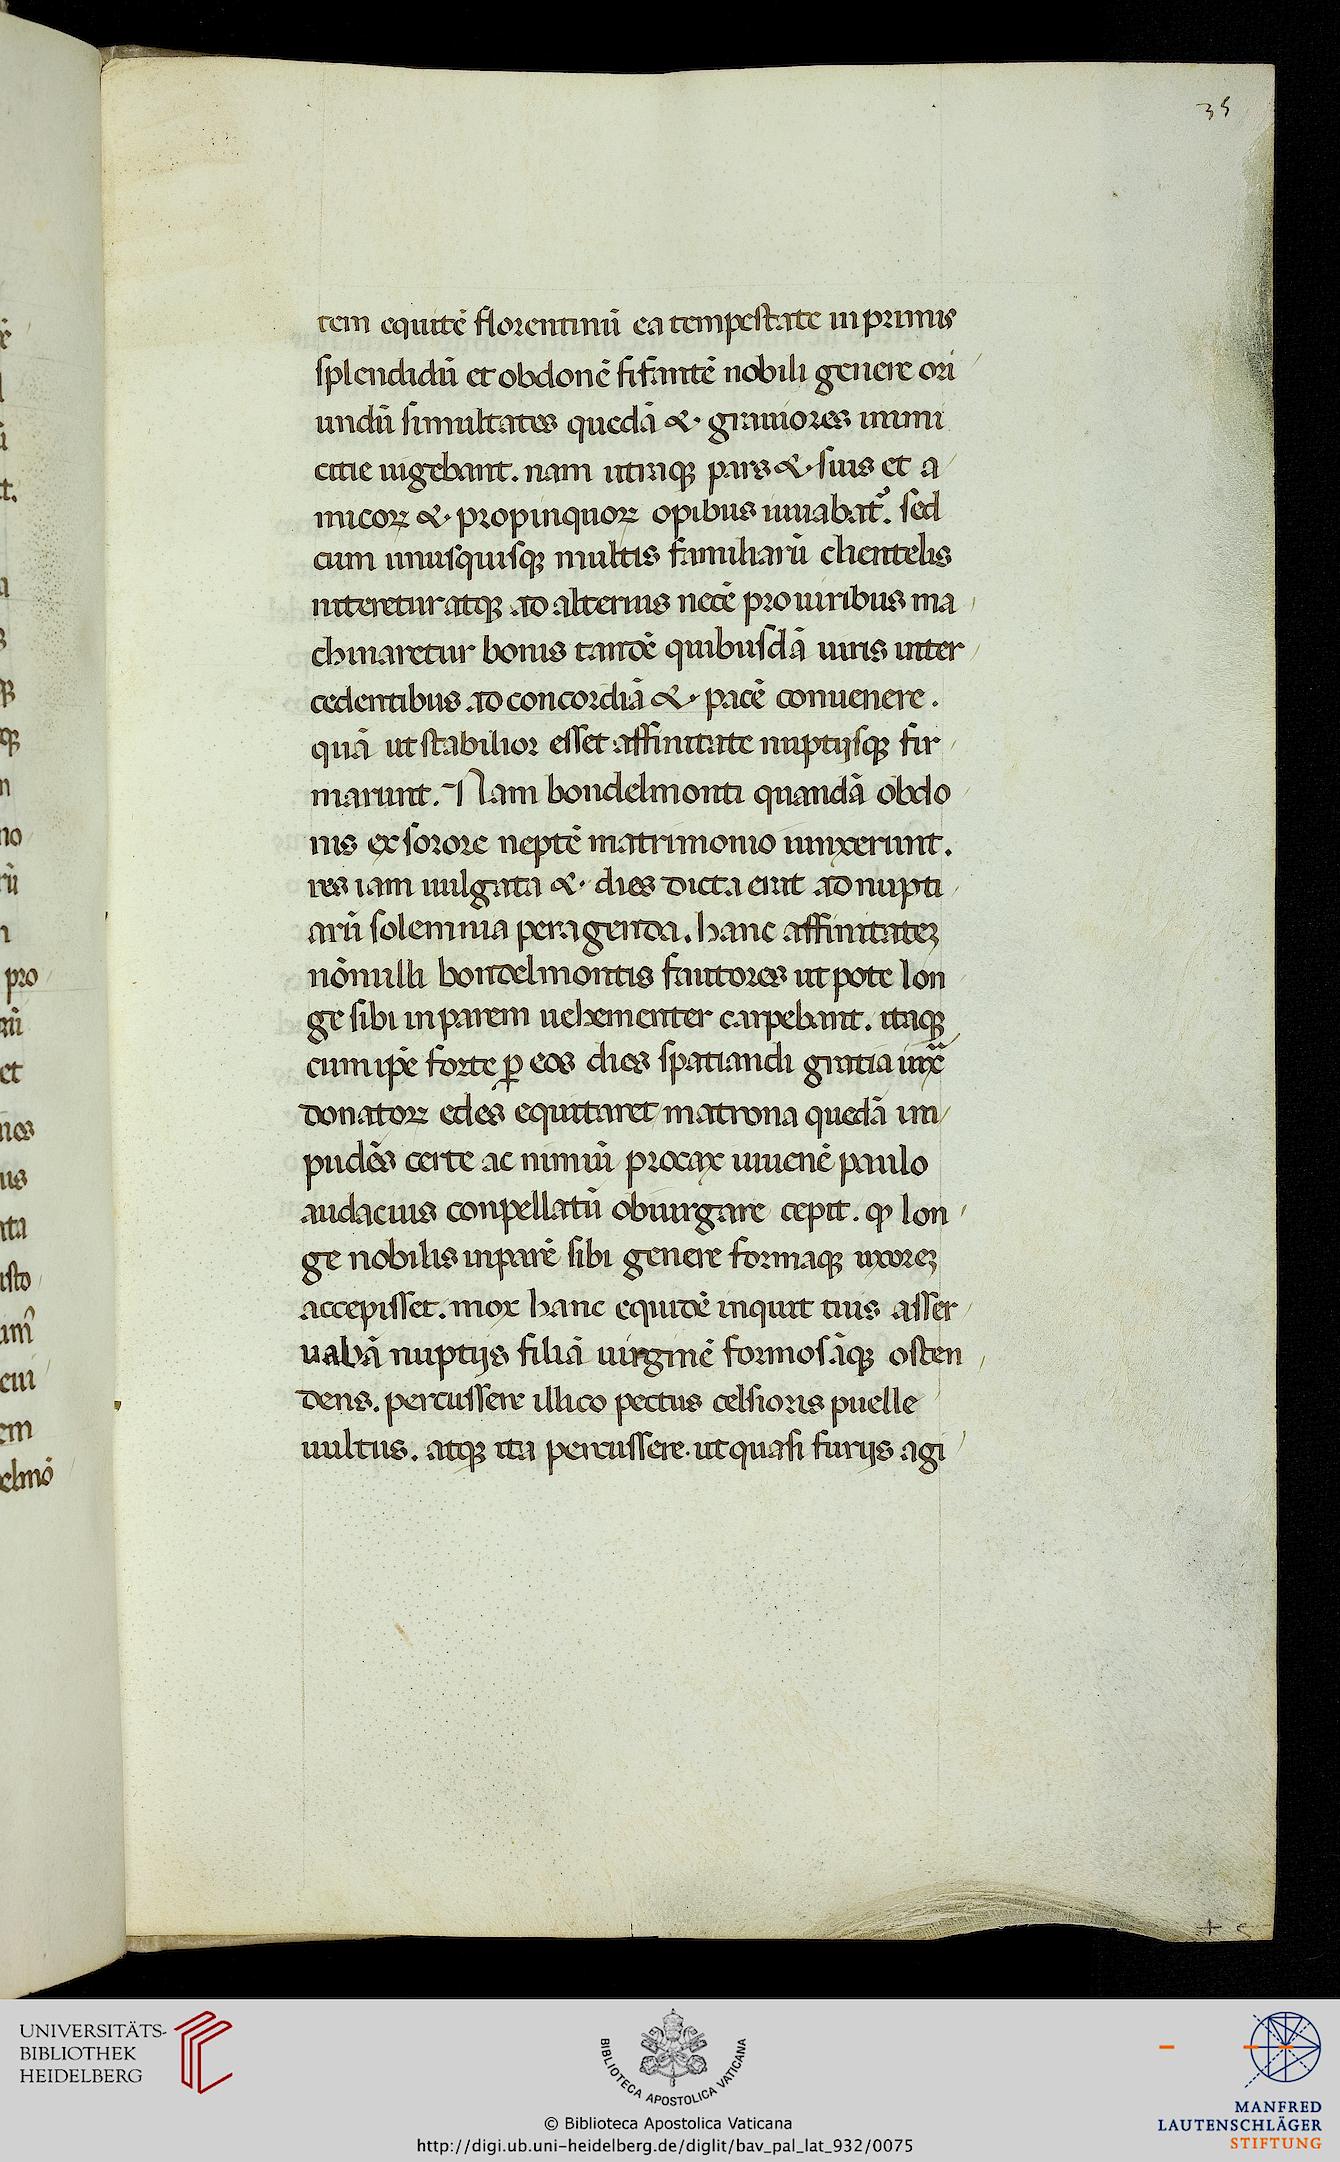 35
tem equitē florentinū ea tempestate in primis
splendidū et obdonē fifantē nobili genere ori
undū simultates quedā &· grauiores inimi
citie uigebant. nam utraqꝫ pars &· suis et a
micoꝝ &· propinquoꝝ opibus iuuabat᷑. sed
cum unusquisqꝫ multis familiarū clientelis
niteretur atqꝫ ad alterius necē pro uiribus ma
chinaretur bonis tandē quibusdā uiris inter
cedentibus ad concordiā &· pacē conuenere.
quā ut stabilior esset affinitate nuptijsqꝫ fir
marunt. Nam bondelmonti quandā obdo
nis ex sorore neptē matrimonio iunxerunt.
res iam uulgata &· dies dicta erat ad nupti
arū solemnia peragenda. hanc affinitateꝫ
nōnulli bondelmontis fautores ut pote lon
ge sibi inparem uehementer carpebant. itaqꝫ
cum ip̄e forte ꝑ eos dies spatiandi gratia iuxͣ
donatoꝝ edes equitaret matrona quedā im
pudēs certe ac nimiū procax iuuenē paulo
audacius conpellatū obiurgare cepit. ꝙ lon
ge nobilis inparē sibi genere formaqꝫ uxoreꝫ
accepisset. mox hanc equidē inquit tuis asser
uabā nuptijs filiā uirginē formosāqꝫ osten
dens. percussere illico pectus celsioris puelle
uultus. atqꝫ ita percussere. ut quasi furijs agi
UNIVERSITÄTS-
BIBLIOTHEK
HEIDELBERG
BIBLIOTECA APOSTOLICA VATICANA
© Biblioteca Apostolica Vaticana
http://digi.ub.uni-heidelberg.de/diglit/bav_pal_lat_932/0075
MANFRED
LAUTENSCHLÄGER
STIFTUNG